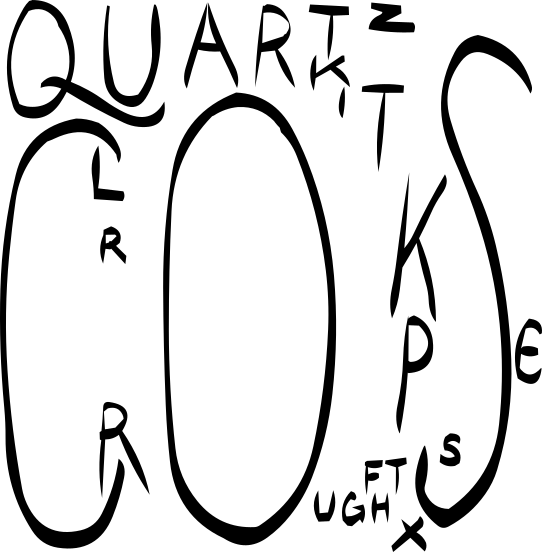 QUARTZ
KI
T
COS
L
R
K
P
E
R
S
FT
UGH
X